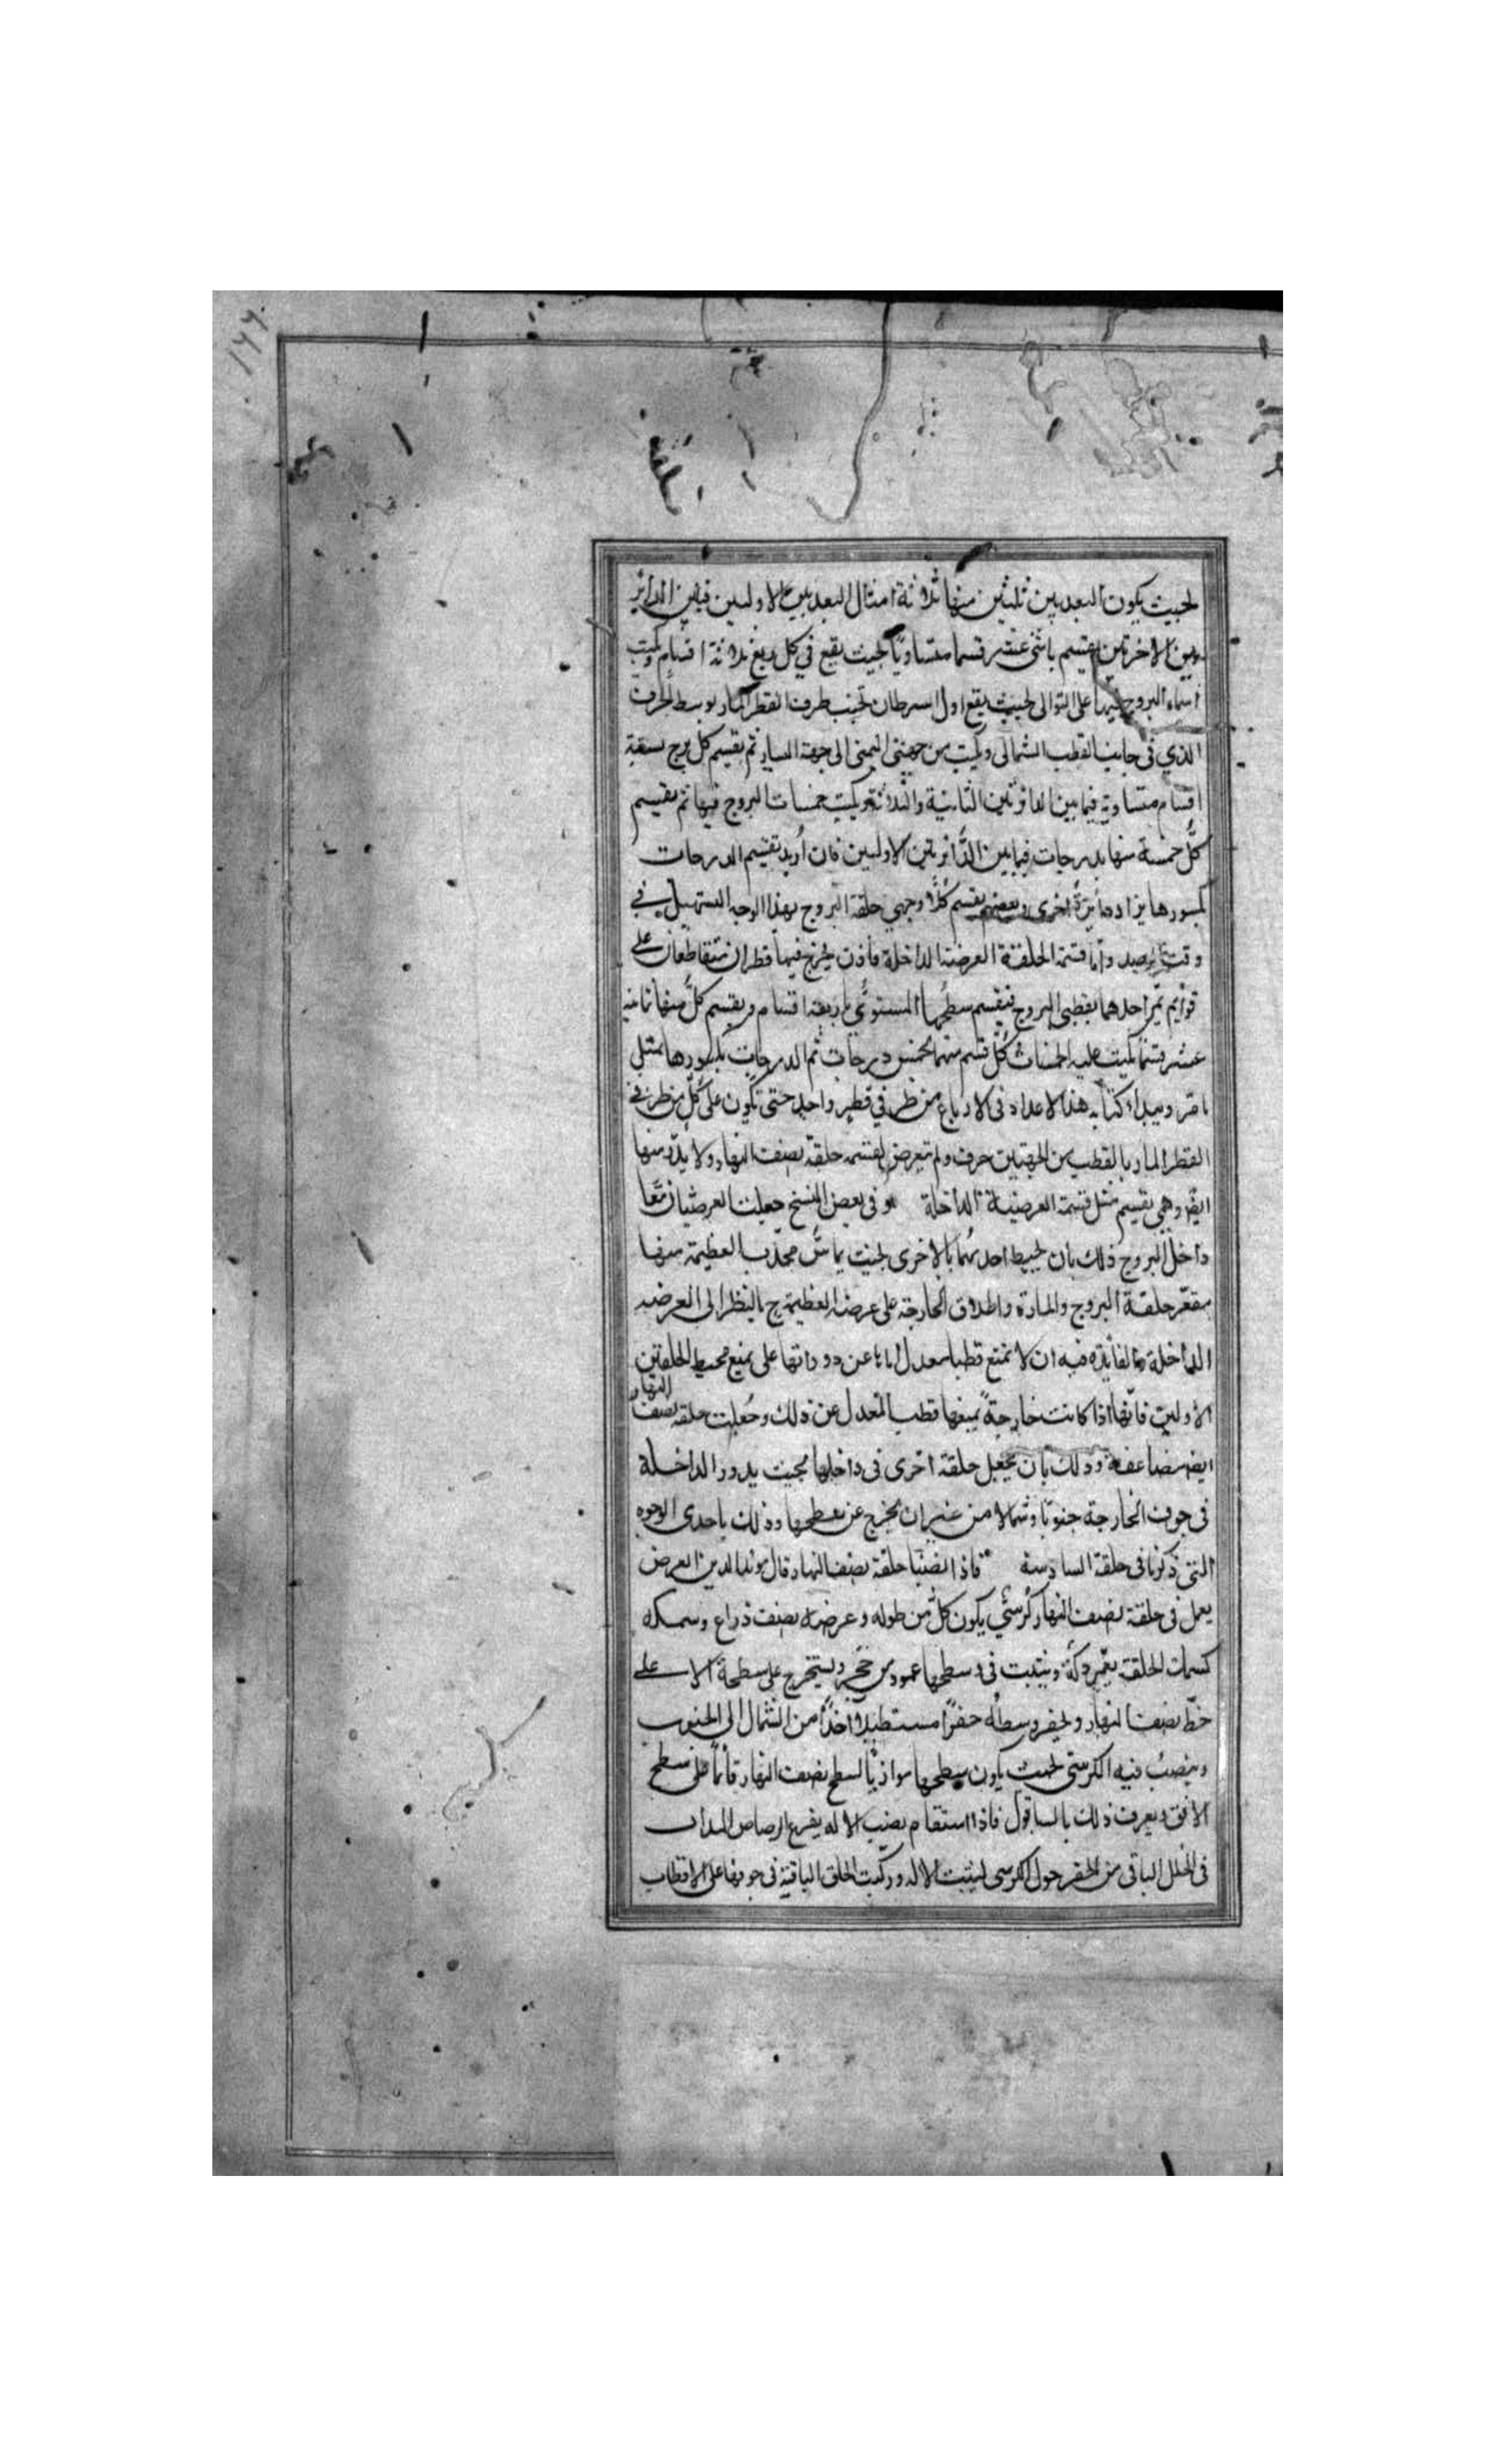 بحيث يكون البعدين ثلثين منها ثلاثة امثال البعدين الاولين فبين الدائر
وبين الاخرتين يقسم باثنى عشر قسما متساويا بحيث يقع في كل ربع ثلاثة اقسام ويكتب
اسماء البروج فيها على التوالى بحيث يقع اول السرطان بجنب طرف القطر المار بوسط الحرف
الذي فى جانب القطب الشمالى ويكتب من جهتى اليمنى الى جهة اليسار ثم يقسم كل برج بستة
اقسام متساوية فيما بين الدائرتين الثانية والثلاثة ويكتب خمسات البروج فيها ثم يقسم
كل خمسة منها بدرجات فيما بين الدائرتين الاوليين فان اريد تقسيم الدرجات
بكسورها يزاد دائرة اخرى وبعضهم يقسم كلا وجهي حلقة البروج بهذا الوجه التسهيل في
وقت الرصد واما قسمة الحلقة العرضة الداخلة فاذن يخرج فيها قطران متقاطعان على
قوايم يمر احدهما بقطبى البروج فيقسم سطحها المستوى باربعة اقسام ويقسم كل منها ثمانية
عشر قسما يكتب عليه الخمسات كل قسم منها لخمس درجات ثم الدرجات بكسورها بمثل
ما مر ويبداء كتابة هذا الاعداد فى الارباع من طرفي قطر واحد حتى تكون على كل من طرفى
القطر المار بالقطب من الجهتين حرف ولم تعرض لقسمة حلقة نصف النهار ولا بد منها
ايضا وهي تقسيم مثل قسمة العرضية الداخلة و فى بعض النسخ جعلت العرضيتان معا
داخل البروج ذلك بان يحيط احديهما بالاخرى بحيث يماس محدب العظيمة منها
مقعر حلقة البروج والمارة واطلاق الخارجة على عرضه العظيمة ح بالنظر الى العرضيه
الداخلة والفائدة فيه ان لا تمنع قطبا معدل عن دوراتها على جميع محيط الحلقتين
الاوليين فانها اذا كانت خارجة يمنعها قطب المعدل عن ذلك وجعلت حلقة نصف النهار
ايضا مضاعفة وذلك بان يجعل حلقة اخرى فى داخلها بحيث يدور الداخلة
فى جوف الخارجة جنوبا وشمالا من غير ان يخرج عن سطحها وذلك باحدى الوجوه
التى ذكرنا فى حلقة السادسة فاذا نصبنا حلقة نصف النهار قال مؤيد الدين العرضى
يعمل فى حلقة نصف النهار كرسي يكون كل من طوله وعرضه نصف ذراع وسمكه
كسمك الحلقة يعمر دكة ويثبت فى وسطها عمود من حجر ويستخرج على سطحه الاعلى
خط نصف النهار ويحفر وسطه حفرا مستطيلا اخذا من الشمال الى الجنوب
وينصب فيه الكرسى بحيث يكون سطحها موازيا لسطح نصف النهار قائما على سطح
الافق ويعرف ذلك بالساقول فاذا استقام نصب الاله يفرع الرصاص المذاب
فى الخلل الباقى من الحفر حول الكرسى لتثبت الاله وركبت الحلق الباقية فى جوفها على الاقطاب